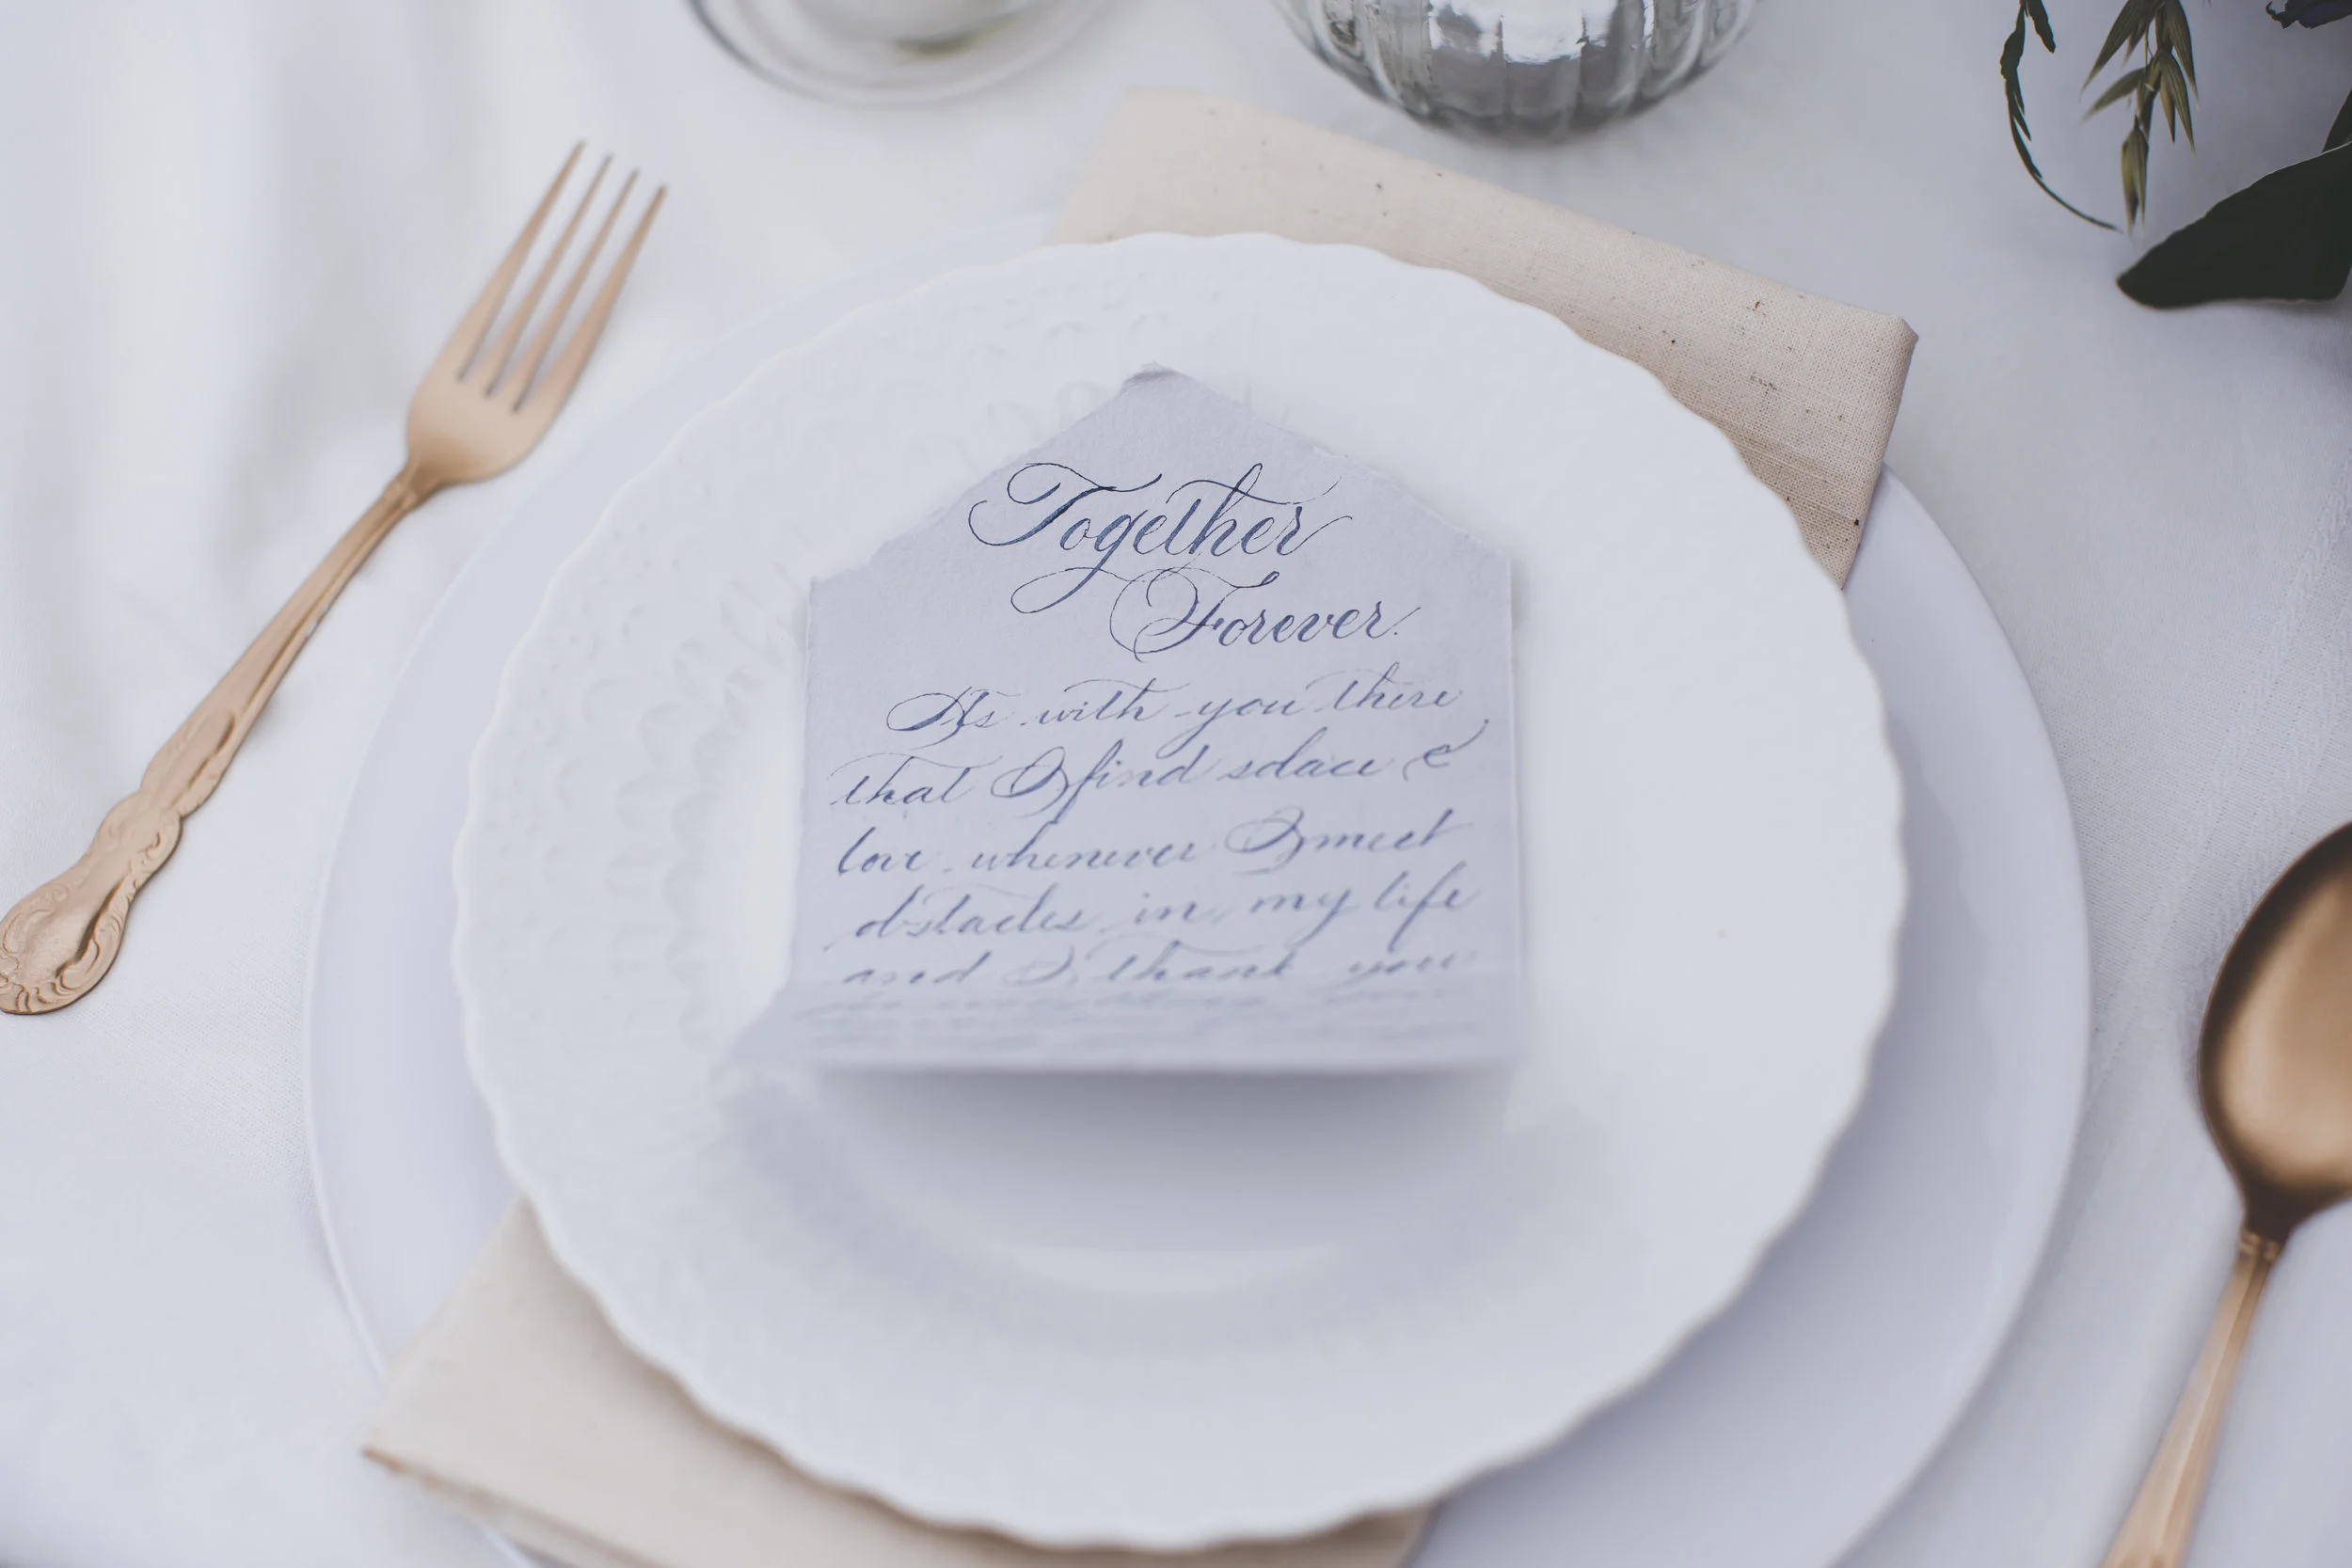 Together
Forever.
Its with you there
that I find solace &
love whenever I meet
obstacles in my life
and I, thank you